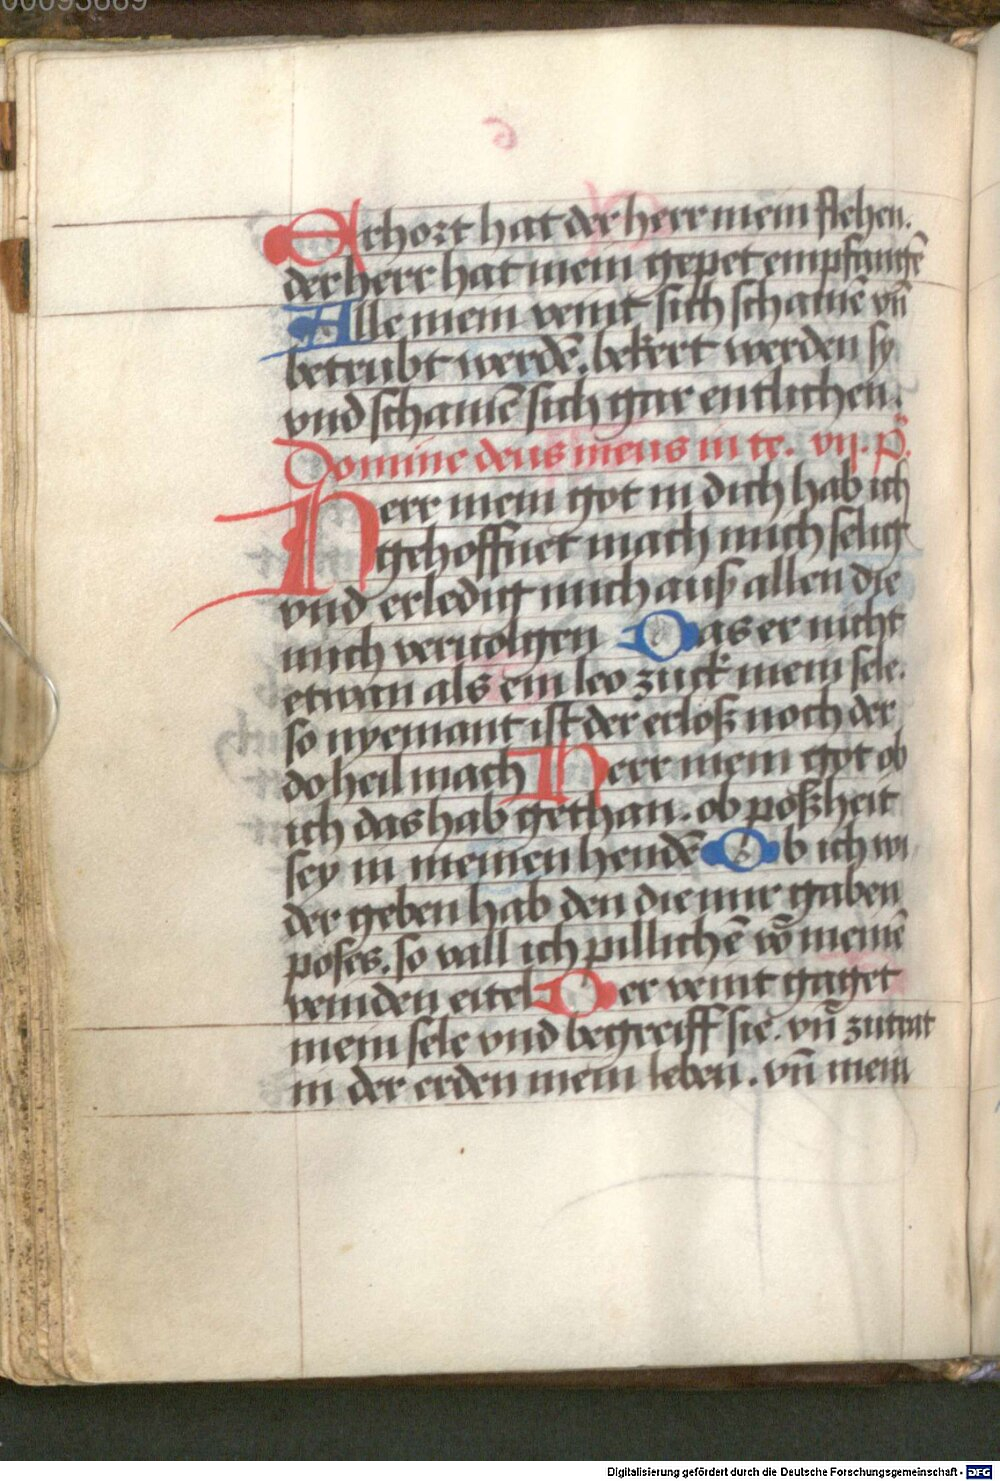 00093669
Erhort hat der herr mein flehen.
der herr hat mein gepet empfangē
Alle mein veint sich schamē vn̄
betrubt werdē. bekert werden sy
vnd schamē sich gar entlichen.
Domine deus meus in te. vij. p̄.
Herr mein got in dich hab ich
gehoffnet mach mich selig
vnd erledig mich auß allen die
mich veruolgen Das er nicht
etwan als ein leo zuck mein sele.
so nyemant ist der erloß noch der
do heil mach Herr mein got ob
ich das hab gethan. ob poßheit
sey in meinen hendē Ob ich wi
der geben hab den die mir gaben
poses. so vall ich pillichē vō meinē
veinden eitel Der veint gaget
mein sele vnd begreiff sie. vn̄ zutrat
in der erden mein leben. vn̄ mein
Digitalisierung gefördert durch die Deutsche Forschungsgemeinschaft - DFG